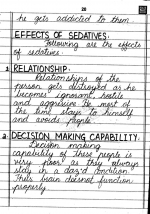 20
he gets addicted to them
EFFECTS OF SEDATIVES:
Following are the effects
of sedatives:
1. RELATIONSHIP:
Relationships of the
person gets destroyed as he
becomes ignorant, hostile
and aggressive. He most of
the time stays to himself
and avoids people.
2. DECISION MAKING CAPABILITY:
Decision making
capability of these people is
very poor as they always
stay in a dazed condition.
Their brain doesnot function
properly.